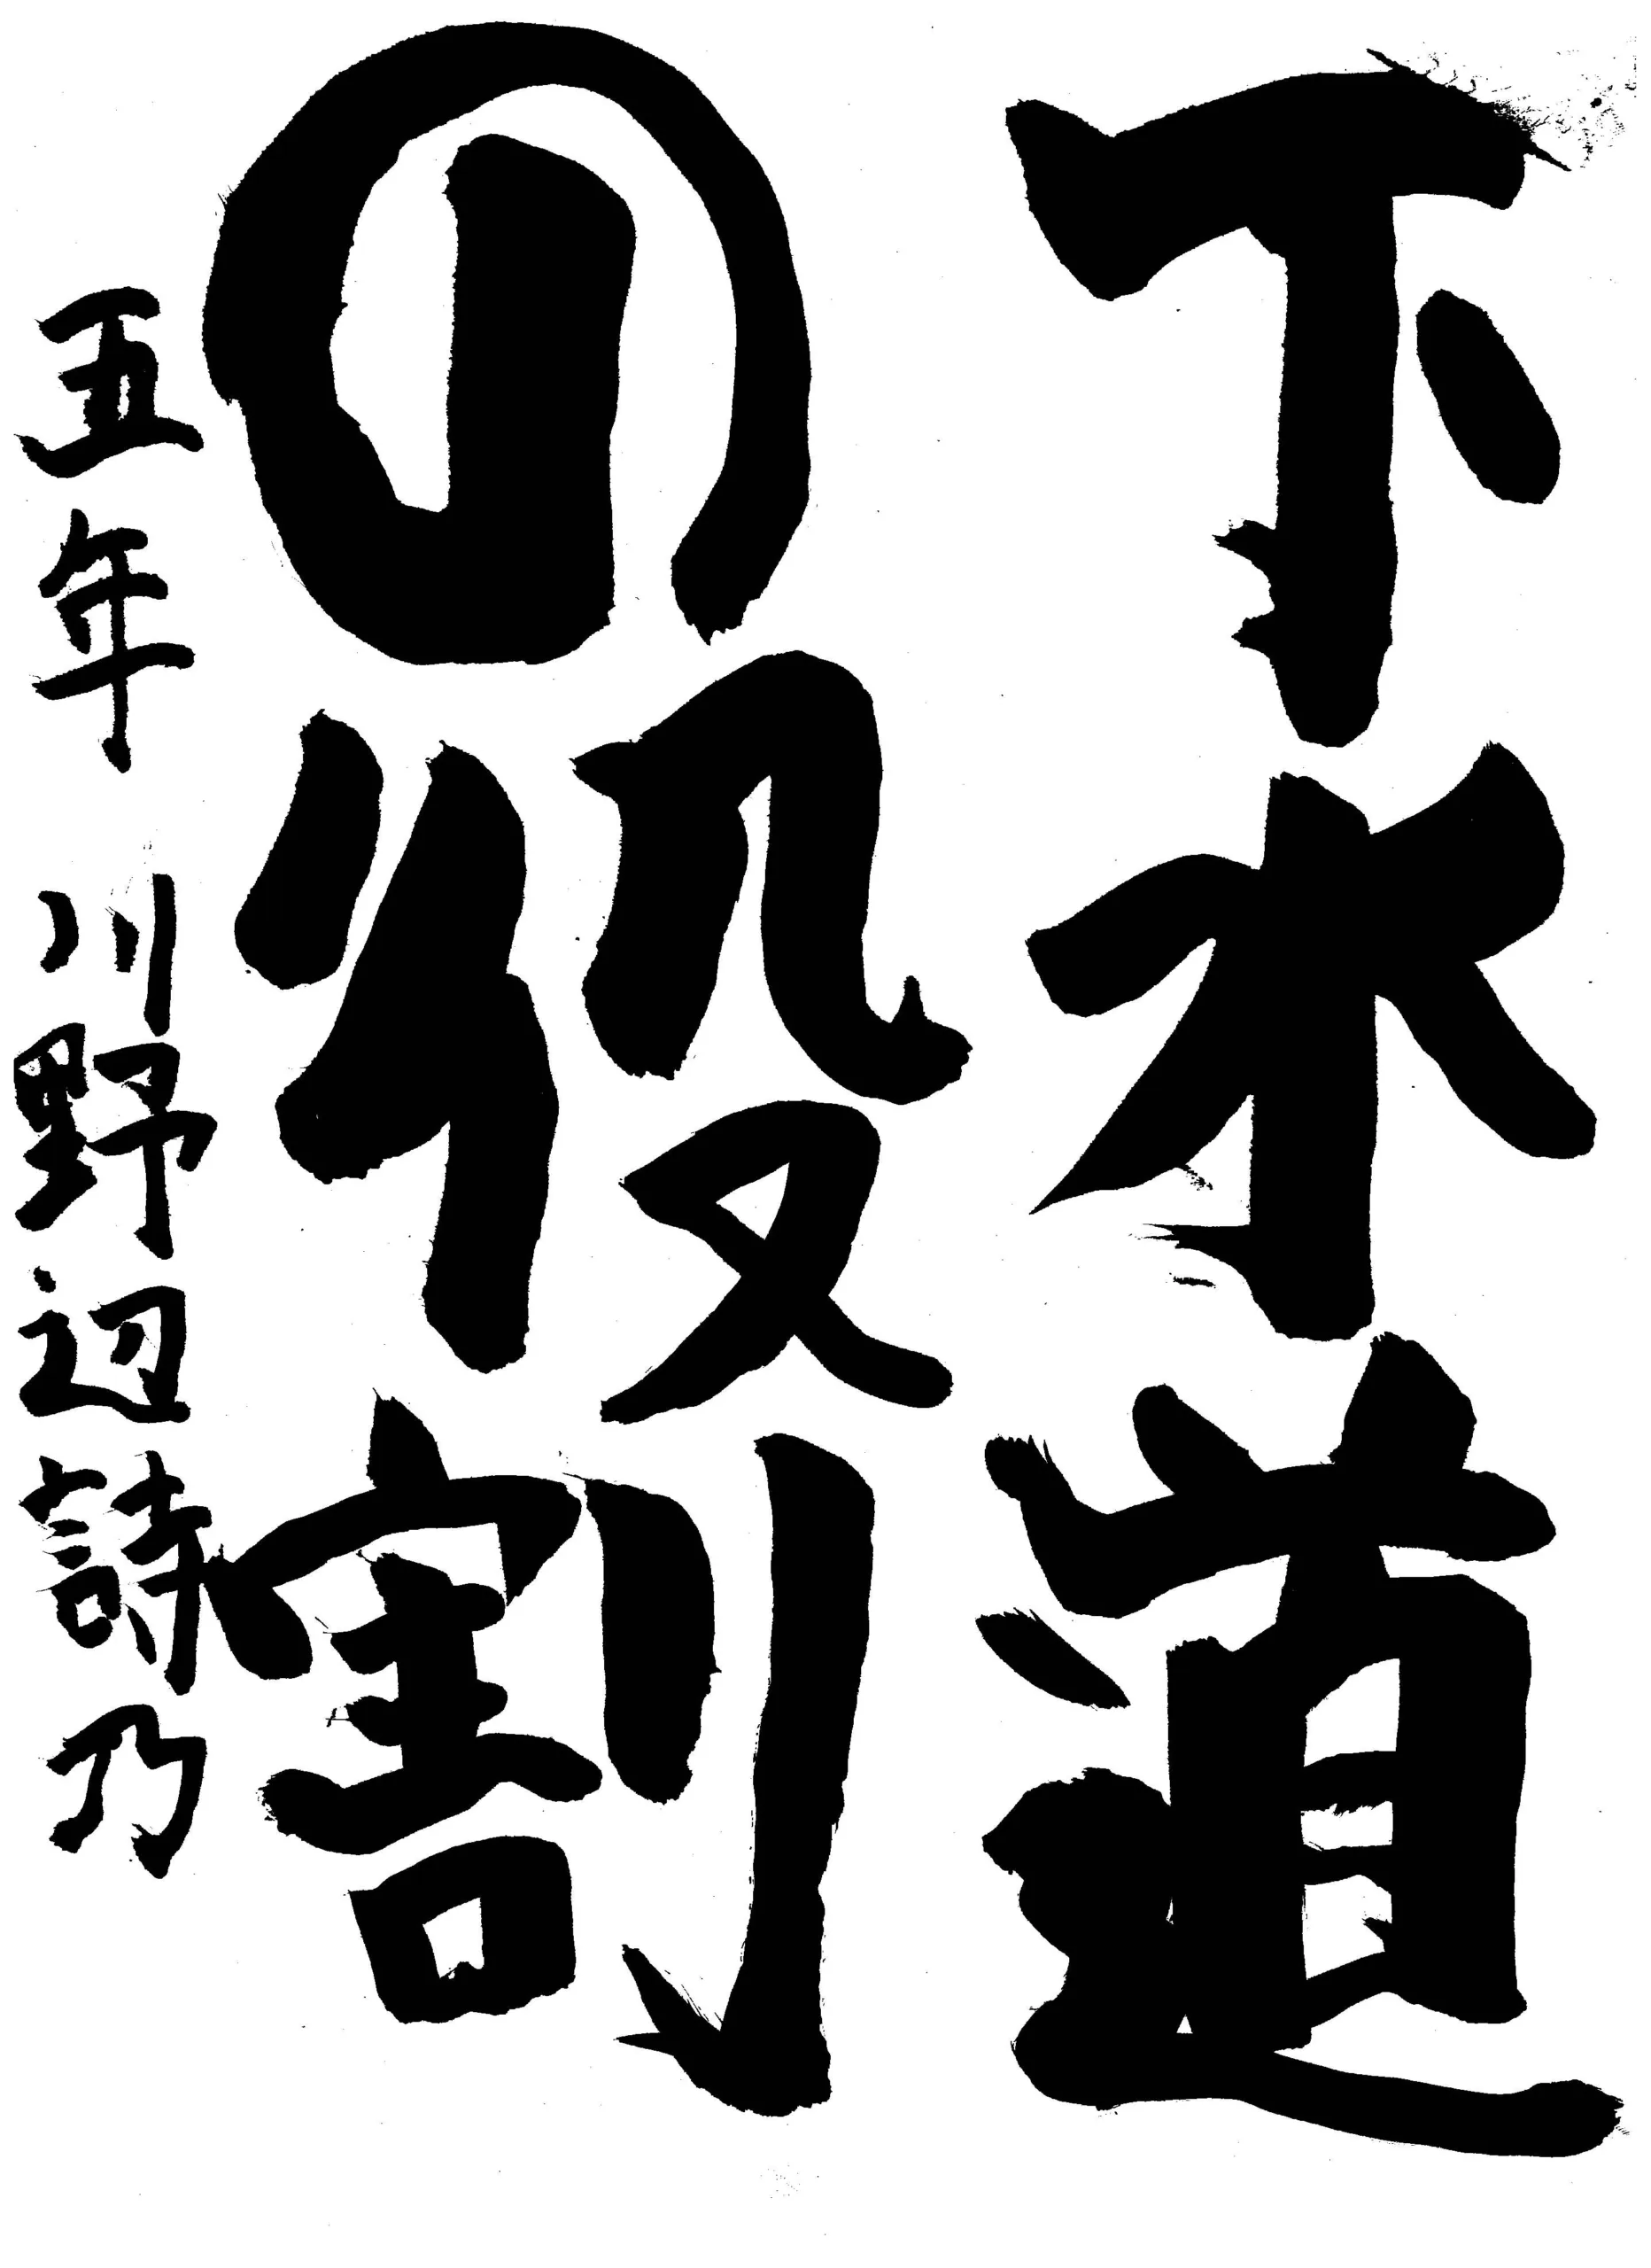 下水道
の役割
五年 川野辺詩乃